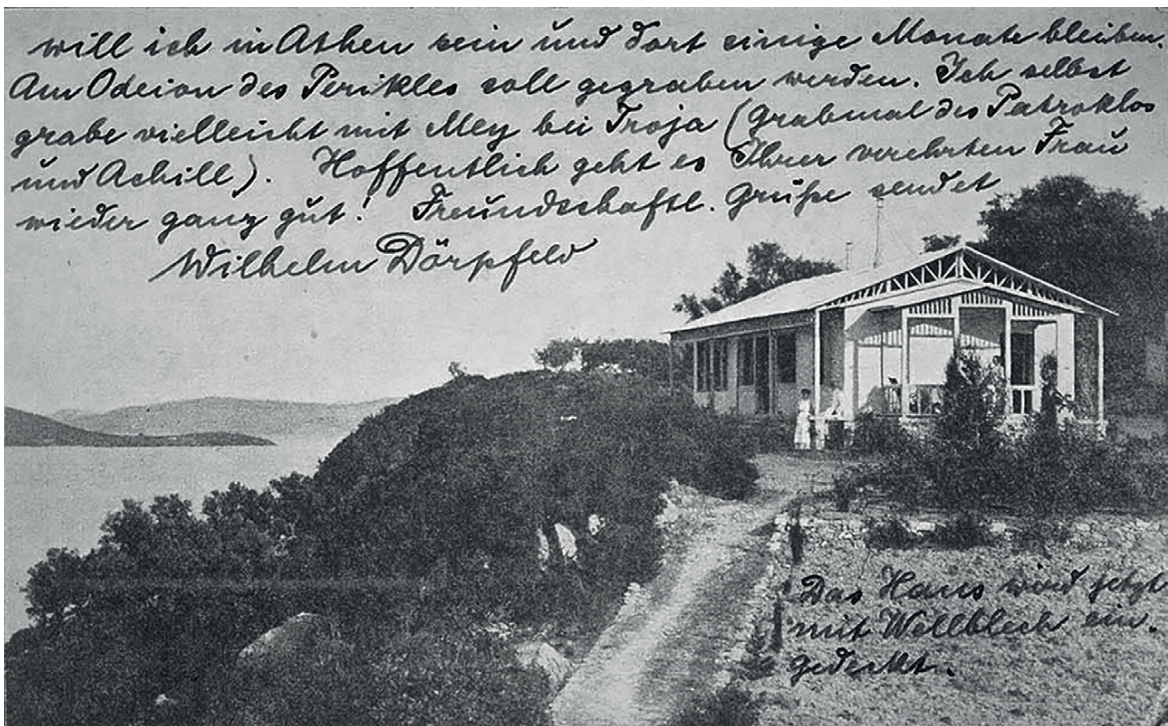 will ich in Athen sein und dort einige Monate bleiben.
Am Odeion des Perikles soll gegraben werden. Ich selbst
grabe vielleicht mit Mey bei Troja (Grabmal des Patroklos
und Achill). Hoffentlich geht es Ihrer verehrten Frau
wieder ganz gut! Freundschaftl. Grüße sendet
Wilhelm Dörpfeld
Das Haus wird jetzt
mit Wellblech ein-
gedeckt.